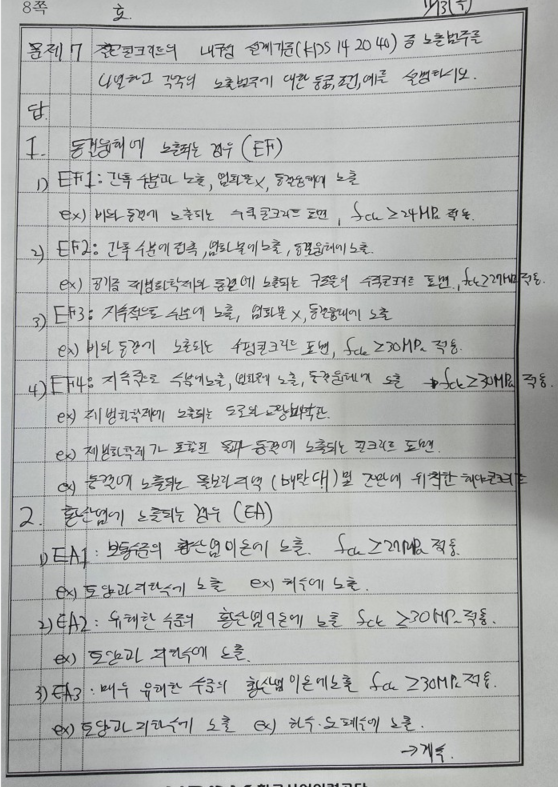 8쪽 호 11/13(수)
문제 7 철근콘크리트의 내구성 설계기준(KDS 14 20 40) 중 노출범주를
나열하고 각각의 노출범주에 대한 등급, 조건, 예를 설명하시오.
답
1. 동결융해에 노출되는 경우 (EF)
1) EF1: 간혹 수분과 노출, 염화물X, 동결융해에 노출
ex) 비와 동결에 노출되는 수직콘크리트 표면, fck ≥24MPa 적용.
2) EF2: 간혹 수분에 접촉, 염화물에 노출, 동결융해에 노출.
ex) 공기중 제빙화학제와 동결에 노출되는 구조물의 수직콘크리트 표면, fck≥27MPa 적용.
3) EF3: 지속적으로 수분에 노출, 염화물X, 동결융해에 노출
ex) 비와 동결에 노출되는 수평콘크리트 표면, fck≥30MPa 적용.
4) EF4: 지속적으로 수분에 노출, 염화물에 노출, 동결융해에 노출 → fck≥30MPa 적용.
ex) 제빙화학제에 노출되는 도로와 교량바닥판.
ex) 제빙화학제가 포함된 물과 동결에 노출되는 콘크리트 표면.
ex) 동결에 노출되는 물보라지역 (비말대) 및 간만대에 위치한 해양콘크리트
2. 황산염에 노출되는 경우 (EA)
1) EA1: 보통수준의 황산염이온에 노출. fck ≥27MPa 적용.
ex) 토양과 지하수에 노출 ex) 해수에 노출.
2) EA2: 유해한 수준의 황산염이온에 노출 fck ≥30MPa 적용.
ex) 토양과 지하수에 노출.
3) EA3: 매우 유해한 수준의 황산염 이온에 노출 fck ≥30MPa 적용.
ex) 토양과 지하수에 노출 ex) 하수·오폐수에 노출.
→계속.